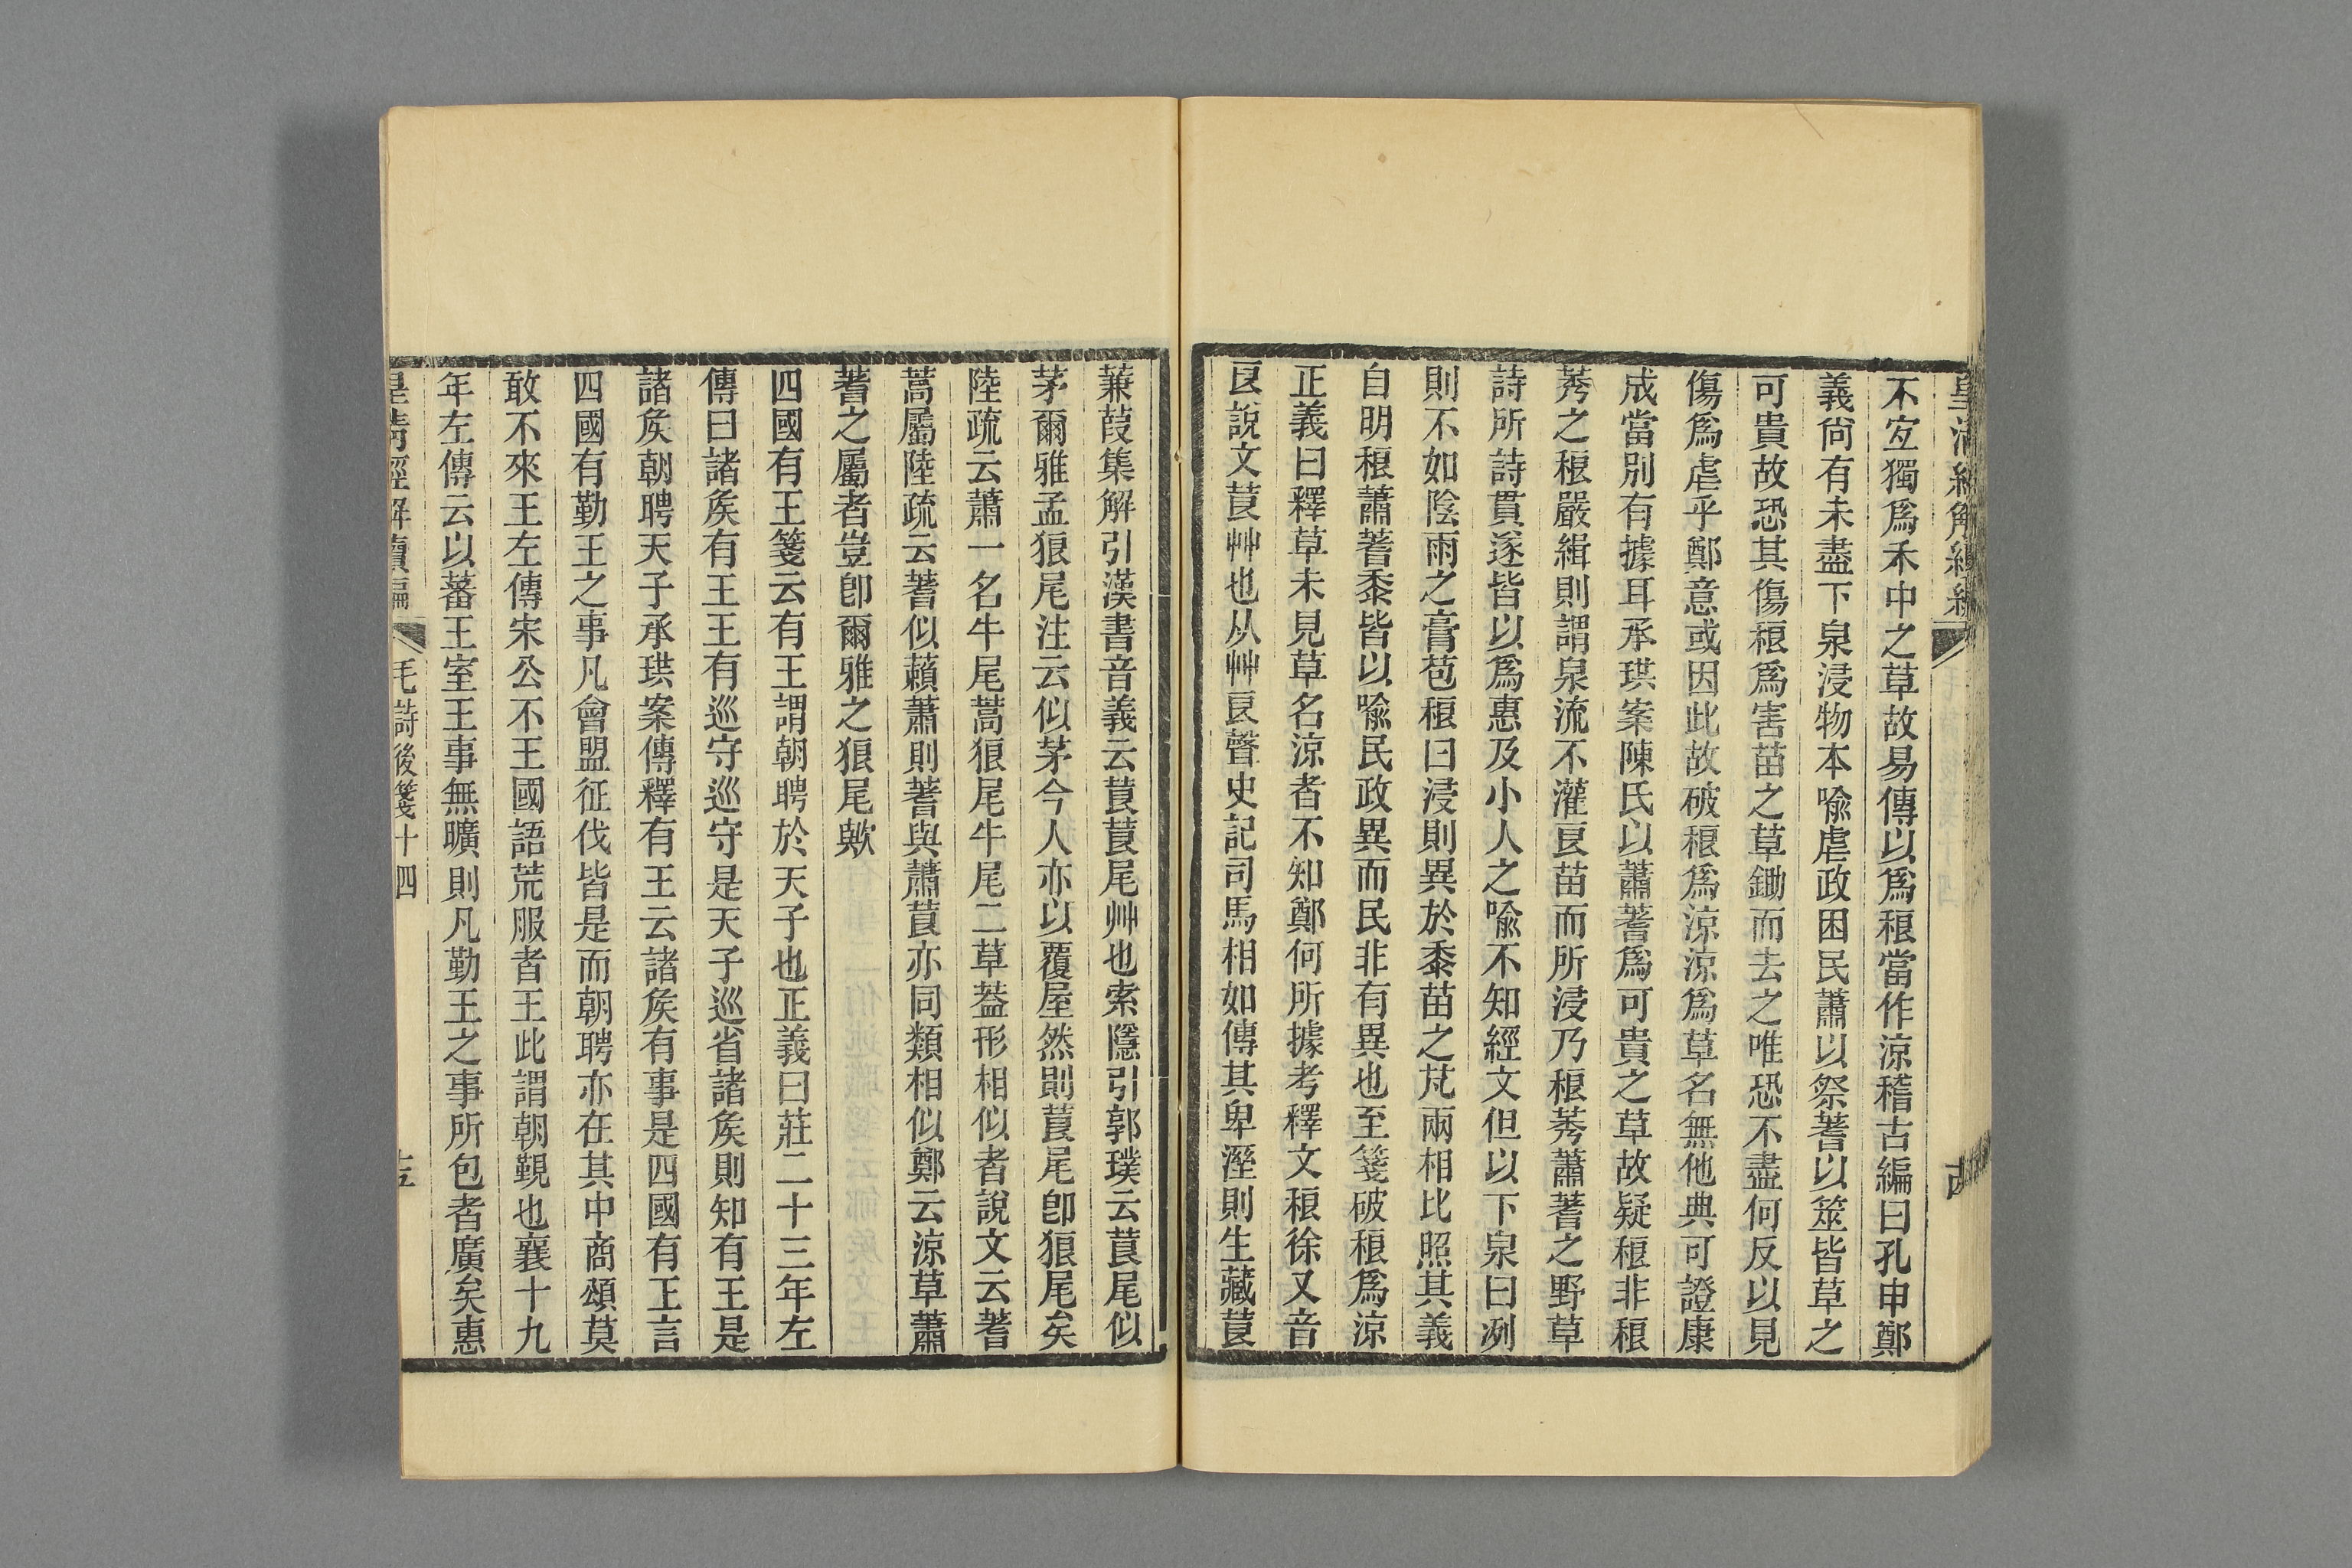 皇清經解續編
不宐獨爲禾中之草故易傳以爲稂當作涼稽古編曰孔申鄭
義尙有未盡下泉浸物本喩虐政困民蕭以祭蓍以筮皆草之
可貴故恐其傷稂爲害苗之草鋤而去之唯恐不盡何反以見
傷爲虐乎鄭意或因此故破稂爲涼涼爲草名無他典可證康
成當別有據耳承珙案陳氏以蕭蓍爲可貴之草故疑稂非稂
莠之稂嚴緝則謂泉流不灌良苗而所浸乃稂莠蕭蓍之野草
詩所詩貫遂皆以爲惠及小人之喩不知經文但以下泉曰冽
則不如陰雨之膏苞稂曰浸則異於黍苗之芃兩相比照其義
自明稂蕭蓍黍皆以喩民政異而民非有異也至箋破稂爲涼
正義曰釋草未見草名涼者不知鄭何所據考釋文稂徐又音
良說文莨艸也从艸良聲史記司馬相如傳其卑溼則生藏莨
蒹葭集解引漢書音義云莨莨尾艸也索隱引郭璞云莨尾似
茅爾雅孟狼尾注云似茅今人亦以覆屋然則莨尾卽狼尾矣
陸疏云蕭一名牛尾蒿狼尾牛尾二草葢形相似者說文云蓍
蒿屬陸疏云蓍似藾蕭則蓍與蕭莨亦同類相似鄭云涼草蕭
蓍之屬者豈卽爾雅之狼尾歟
四國有王箋云有王謂朝聘於天子也正義曰莊二十三年左
傳曰諸矦有王王有巡守巡守是天子巡省諸矦則知有王是
諸矦朝聘天子承珙案傳釋有王云諸矦有事是四國有王言
四國有勤王之事凡會盟征伐皆是而朝聘亦在其中商頌莫
敢不來王左傳宋公不王國語荒服者王此謂朝覲也襄十九
年左傳云以蕃王室王事無曠則凡勤王之事所包者廣矣惠
皇清經解續編 毛詩後箋十四 十五